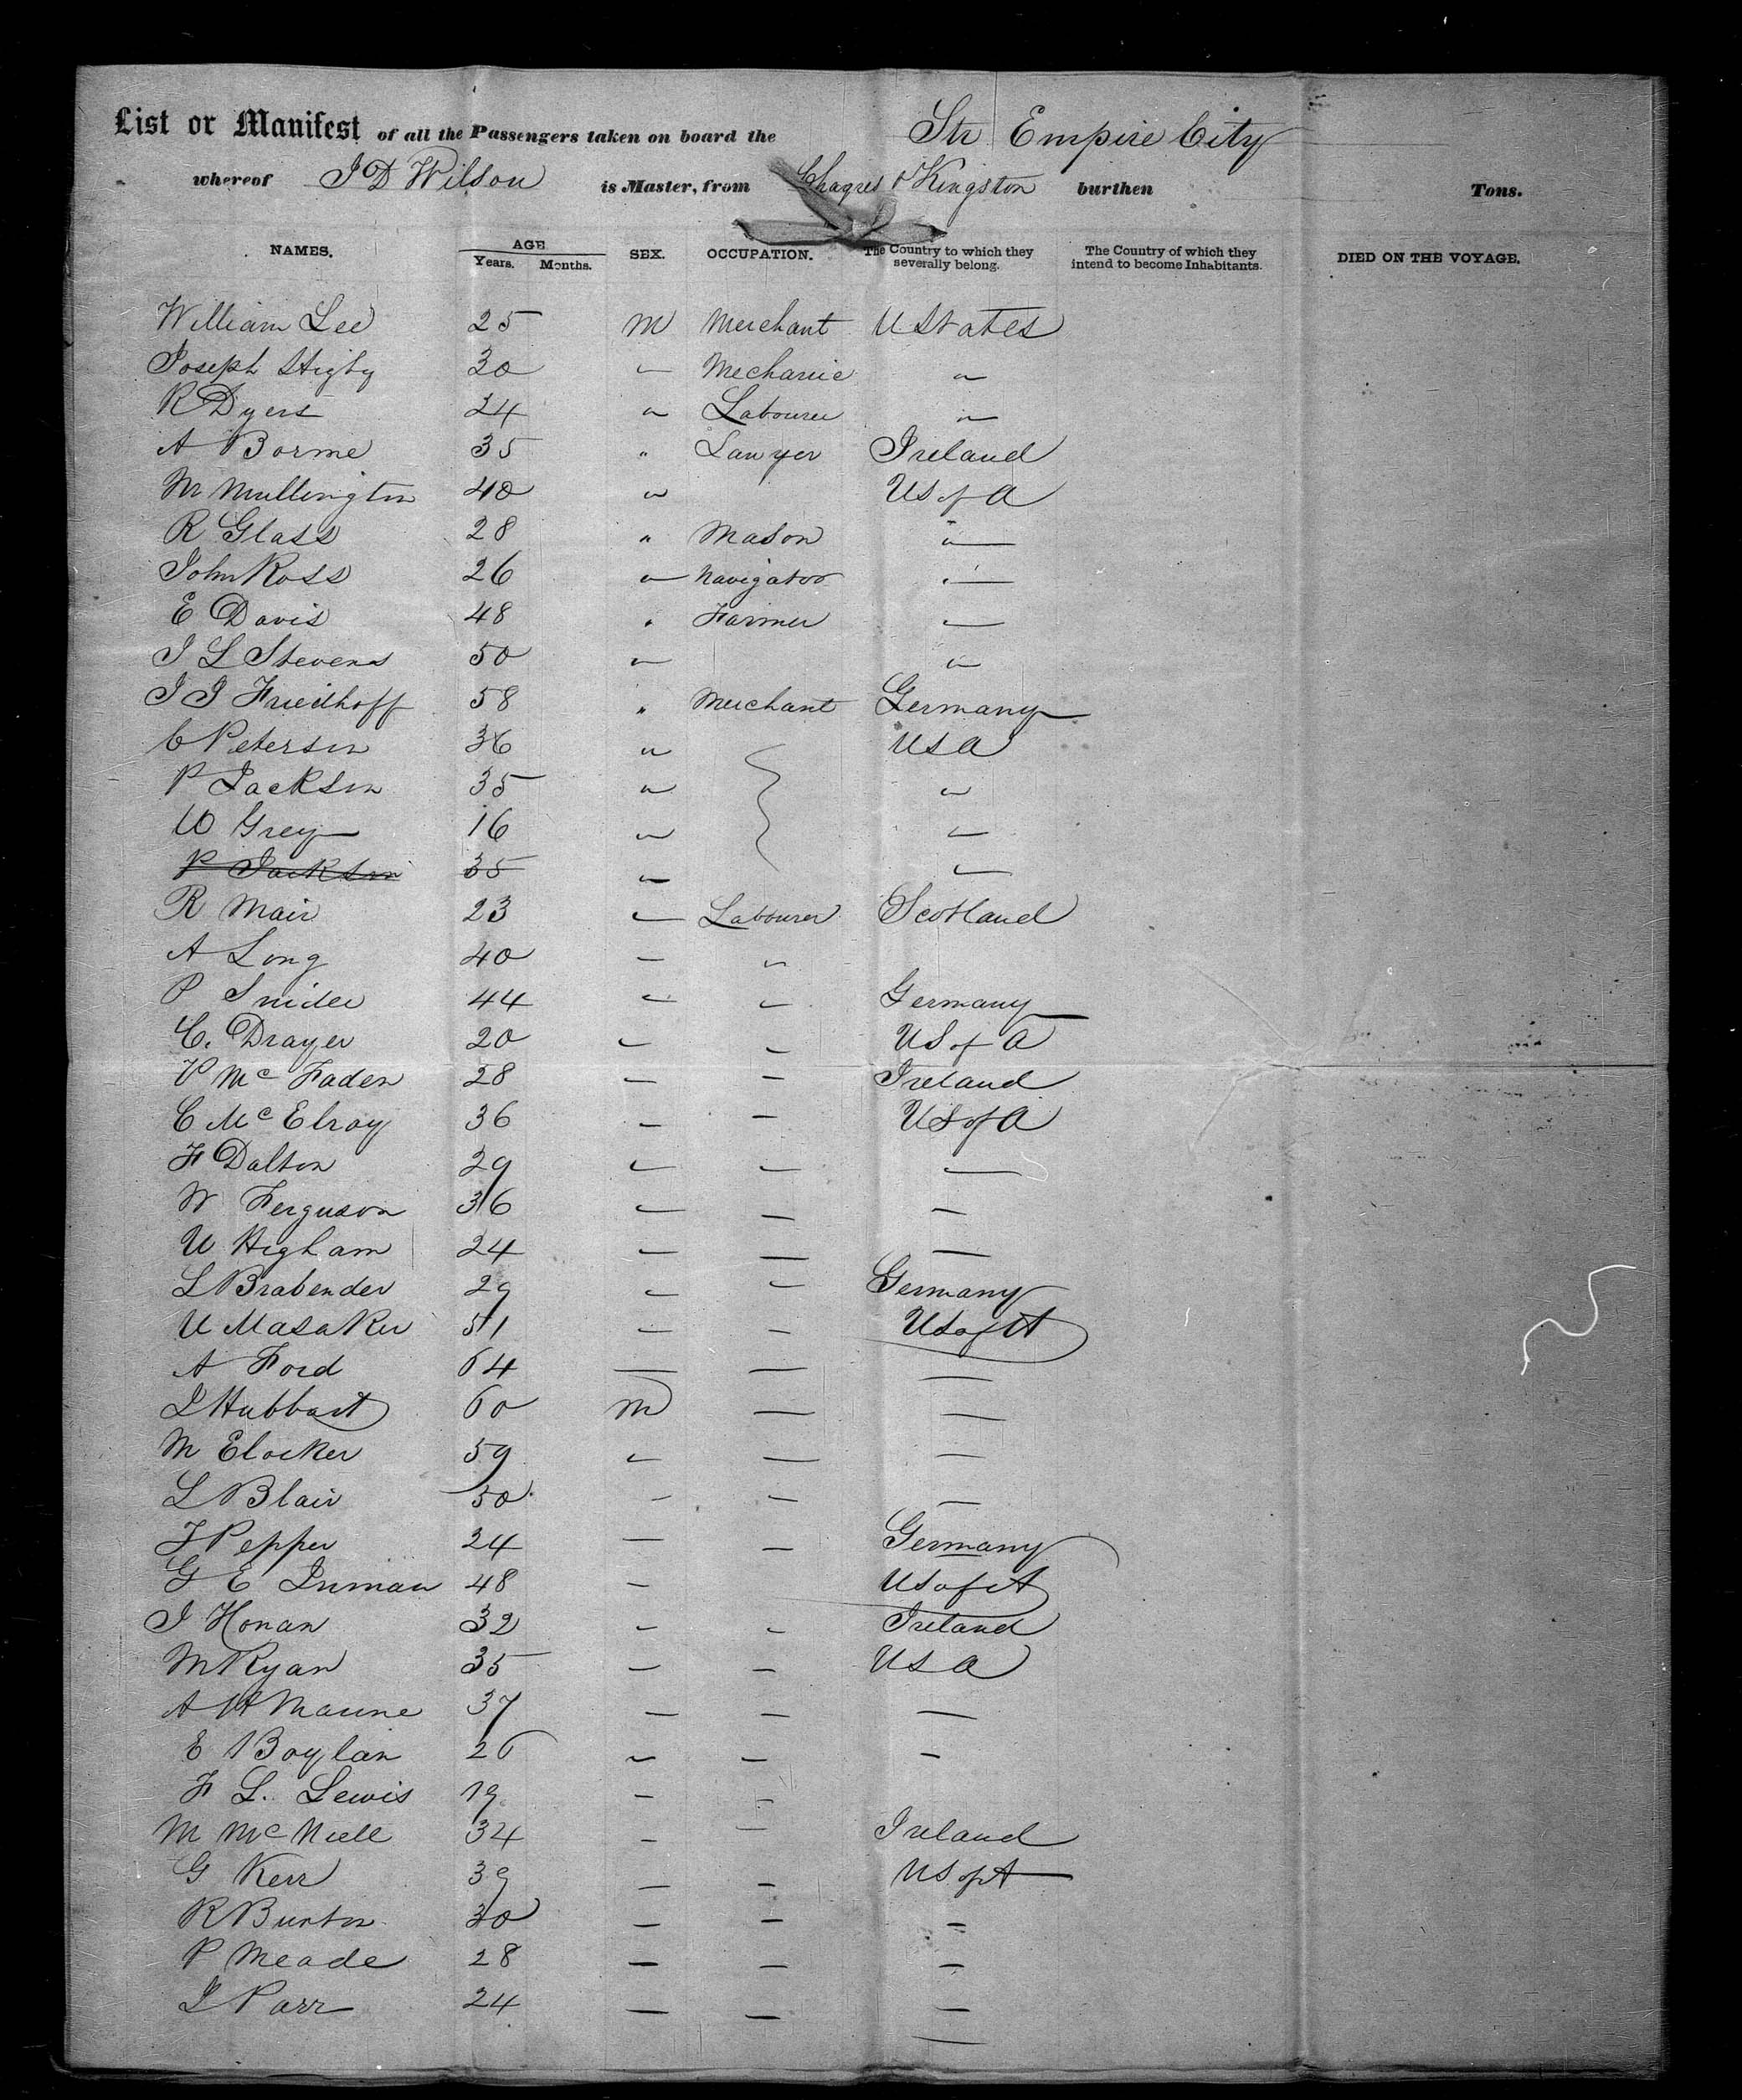 List or Manifest of all the Passengers taken on board the Str Empire City
whereof J D Wilson is Master, from Chagres & Kingston burthen Tons.
NAMES. AGE Years. Months. SEX. OCCUPATION. The Country to which they severally belong. The Country of which they intend to become Inhabitants. DIED ON THE VOYAGE.
William Lee 25 M Merchant U States
Joseph Higby 30 " Mechanic "
R Dyers 24 " Labourer "
A Borme 35 " Lawyer Ireland
M Mullington 40 " US of A
R Glass 28 " Mason "
John Ross 26 " Navigator "
E Davis 48 " Farmer "
J L Stevens 50 " "
J J Friedhoff 58 " Merchant Germany
C Peterson 36 " USA
P Jackson 35 " "
W Grey 16 " "
P Jackson 35 " "
R Mair 23 " Labourer Scotland
A Long 40 " "
P Snider 44 " " Germany
C. Drayer 20 " " US of A
P Mc Faden 28 " " Ireland
C Mc Elroy 36 " " US of A
F Dalton 29 " " "
W Ferguson 36 " " "
W Higham 24 " " "
L Brabender 29 " " Germany
U Masaker 51 " " US of A
A Ford 64 " " "
J Hubbart 60 M " "
M Elocker 59 " " "
L Blair 50 " " "
J Pepper 24 " " Germany
G E Inman 48 " US of A
J Honan 32 " " Ireland
M Ryan 35 " " USA
A W Maune 37 " " "
E Boylan 26 " " "
F L. Lewis 19 " "
M Mc Niell 34 " " Ireland
G Kerr 39 " " US of A
R Burton 30 " " "
P Meade 28 " " "
J Parr 24 " " "